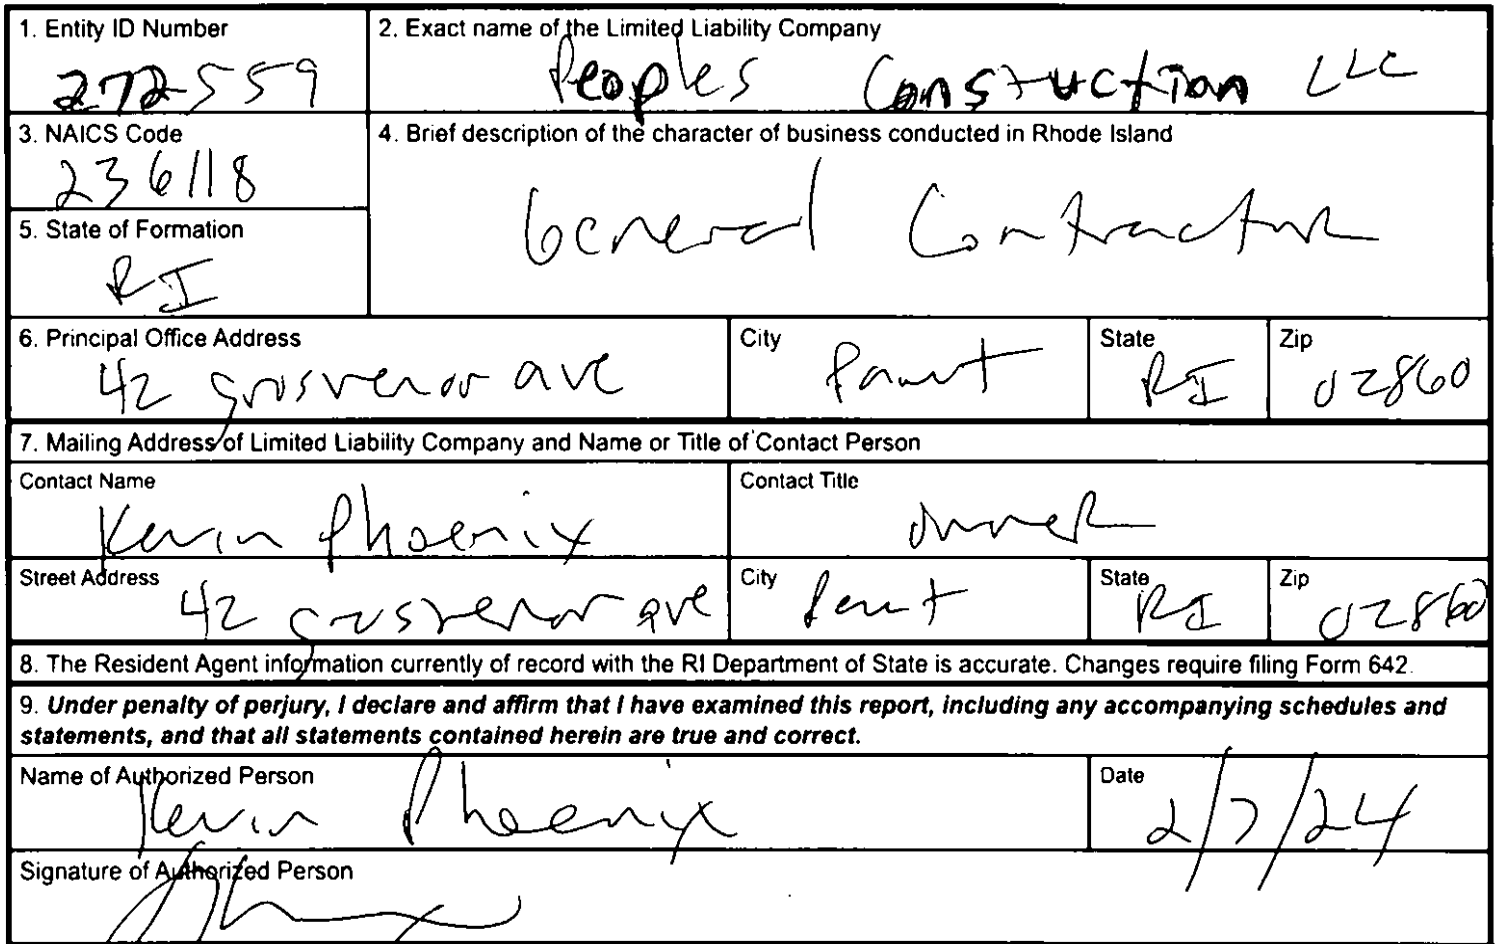 1. Entity ID Number
272559
2. Exact name of the Limited Liability Company
Peoples Construction LLC
3. NAICS Code
236118
4. Brief description of the character of business conducted in Rhode Island
General Contractor
5. State of Formation
RI
6. Principal Office Address
42 grosvenor ave
City
Pawt
State
RI
Zip
02860
7. Mailing Address of Limited Liability Company and Name or Title of Contact Person
Contact Name
Kevin Phoenix
Contact Title
owner
Street Address
42 grosvenor ave
City
Pawt
State
RI
Zip
02860
8. The Resident Agent information currently of record with the RI Department of State is accurate. Changes require filing Form 642.
9. Under penalty of perjury, I declare and affirm that I have examined this report, including any accompanying schedules and
statements, and that all statements contained herein are true and correct.
Name of Authorized Person
Kevin Phoenix
Date
2/7/24
Signature of Authorized Person